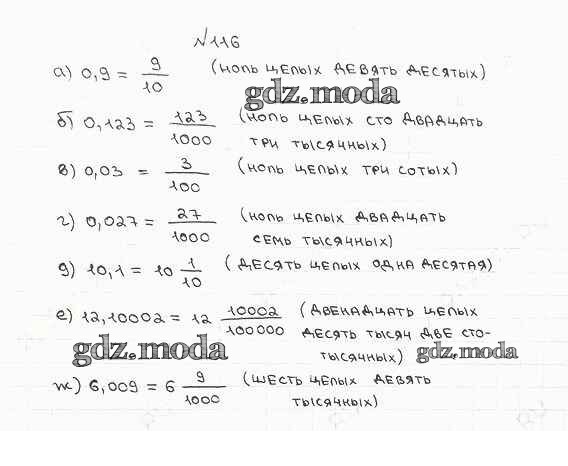 №116
а) 0,9 = 9/10 (ноль целых девять десятых)
gdz.moda
б) 0,123 = 123/1000 (ноль целых сто двадцать
три тысячных)
в) 0,03 = 3/100 (ноль целых три сотых)
г) 0,027 = 27/1000 (ноль целых двадцать
семь тысячных)
д) 10,1 = 10 1/10 (десять целых одна десятая)
е) 12,10002 = 12 10002/100000 (двенадцать целых
десять тысяч две сто-
тысячных)
gdz.moda
gdz.moda
ж) 6,009 = 6 9/1000 (шесть целых девять
тысячных)